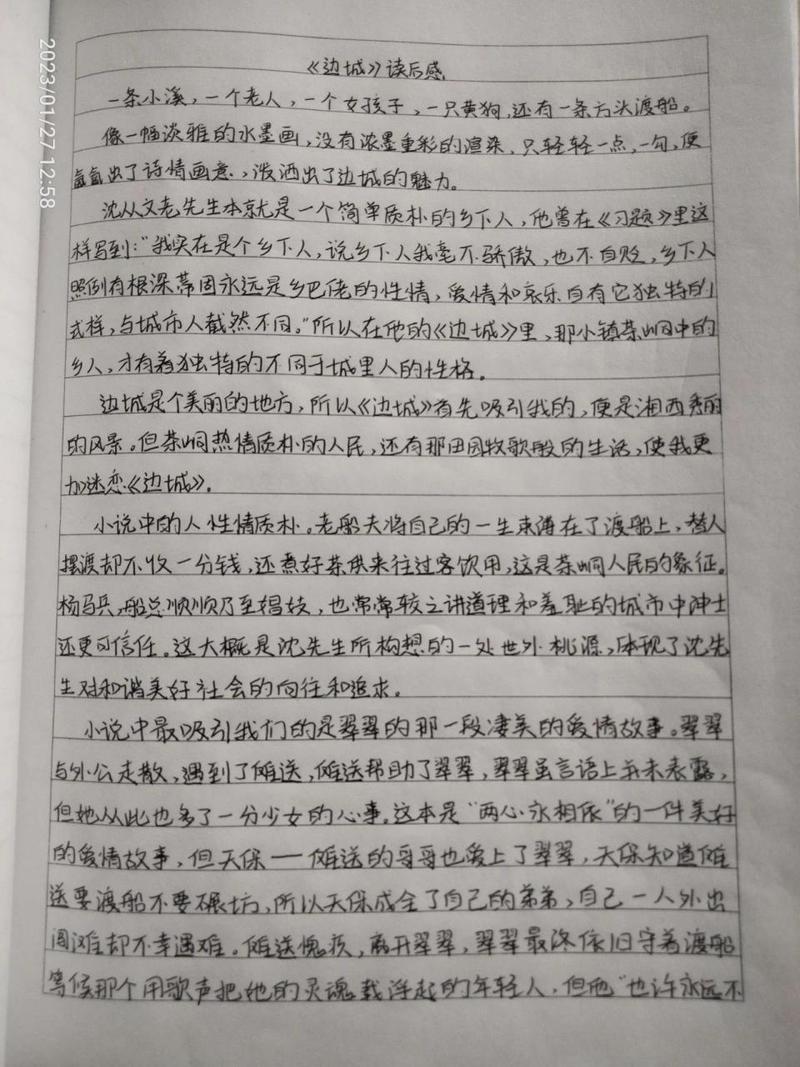 2023/01/27 12:58
《边城》读后感
一条小溪，一个老人，一个女孩子，一只黄狗，还有一条方头渡船。
像一幅淡雅的水墨画，没有浓墨重彩的渲染，只轻轻一点，一勾，便
氤氲出了诗情画意，泼洒出了边城的魅力。
沈从文老先生本就是一个简单质朴的乡下人，他曾在《习题》里这
样写到："我实在是个乡下人，说乡下人我毫不骄傲，也不自贬，乡下人
照例有根深蒂固永远是乡巴佬的性情，爱情和哀乐自有它独特的
式样，与城市人截然不同。"所以在他的《边城》里，那小镇茶峒中的
乡人，才有着独特的不同于城里人的性格。
边城是个美丽的地方，所以《边城》首先吸引我的，便是湘西秀丽
的风景。但茶峒热情质朴的人民，还有那田园牧歌般的生活，使我更
加迷恋《边城》。
小说中的人性情质朴。老船夫将自己的一生束缚在了渡船上，替人
摆渡却不收一分钱，还煮好茶供来往过客饮用，这是茶峒人民的象征。
杨马兵，船总顺顺乃至娼妓，也常常较之讲道理和羞耻的城市中绅士
还更可信任。这大概是沈先生所构想的一处世外桃源，体现了沈先
生对和谐美好社会的向往和追求。
小说中最吸引我们的是翠翠的那一段凄美的爱情故事。翠翠
与外公走散，遇到了傩送，傩送帮助了翠翠，翠翠虽言语上并未表露，
但她从此也多了一分少女的心事。这本是"两心永相依"的一件美好
的爱情故事，但天保——傩送的哥哥也爱上了翠翠，天保知道傩
送要渡船不要碾坊，所以天保成全了自己的弟弟，自己一人外出
闯滩却不幸遇难。傩送愧疚，离开翠翠，翠翠最终依旧守着渡船
等候那个用歌声把她的灵魂载浮起的年轻人，但他"也许永远不